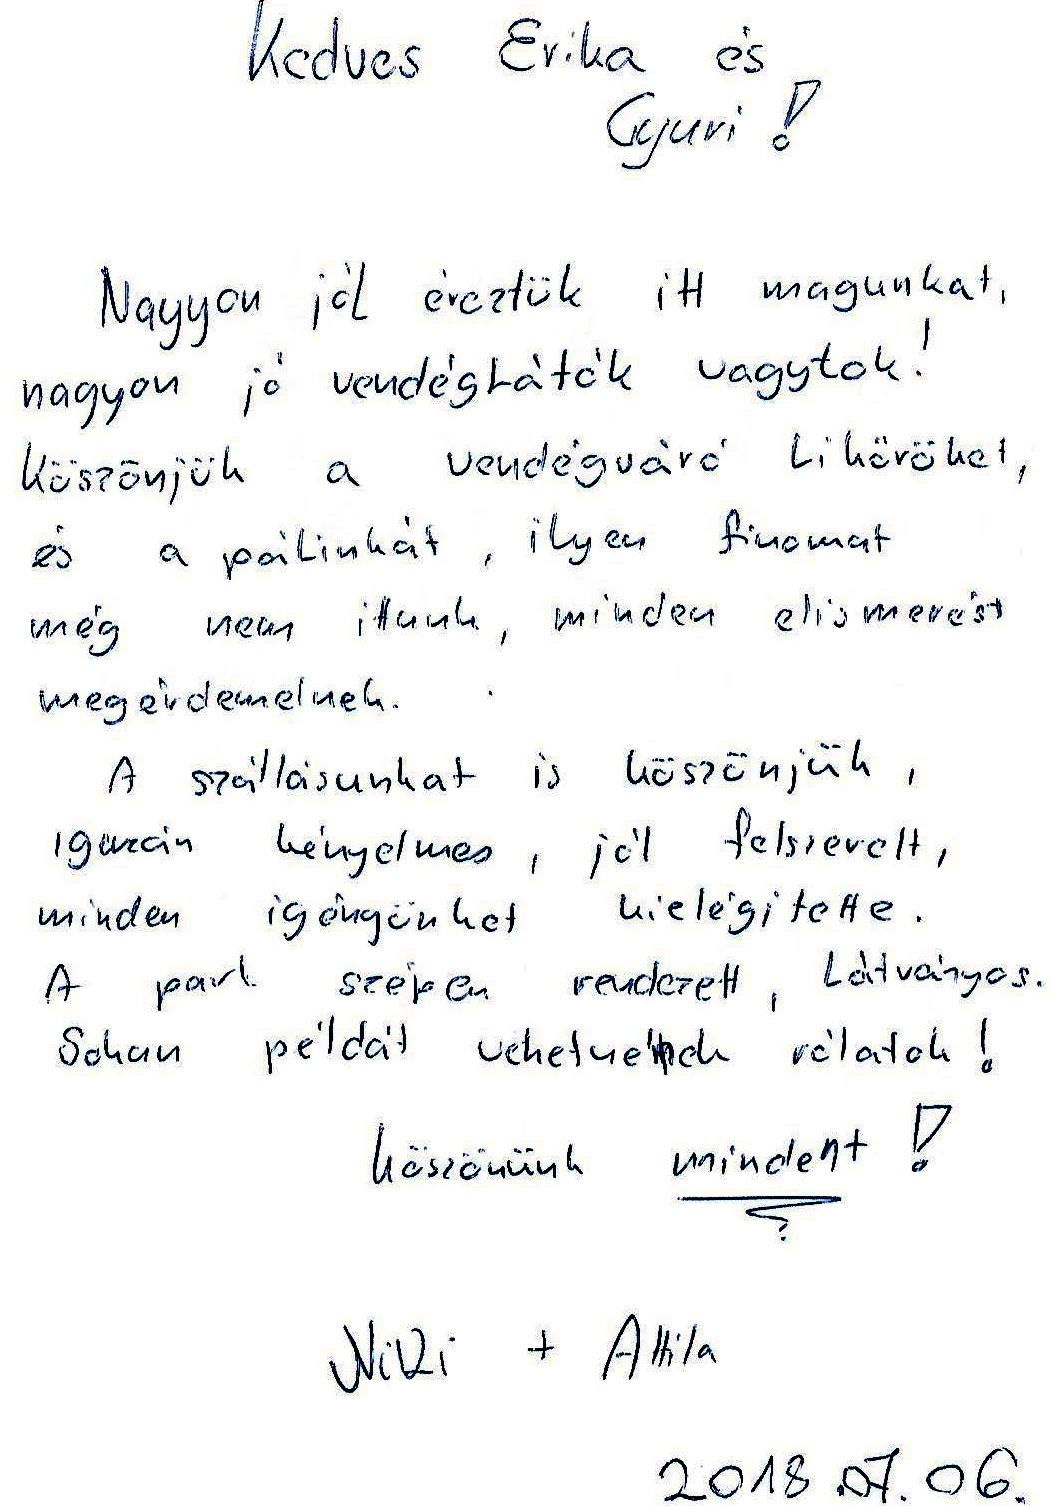 Kedves Erika és
Gyuri!
Nagyon jól éreztük itt magunkat,
nagyon jó vendéglátók vagytok!
Köszönjük a vendégváró likőröket,
és a pálinkát, ilyen finomat
még nem ittunk, minden elismerést
megérdemelnek.
A szállásunkat is köszönjük,
igazán kényelmes, jól felszerelt,
minden igényünket kielégitette.
A park szépen rendezett, látványos.
Sokan példát vehetnének rólatok!
Köszönünk mindent!
Niki + Attila
2018.07.06.